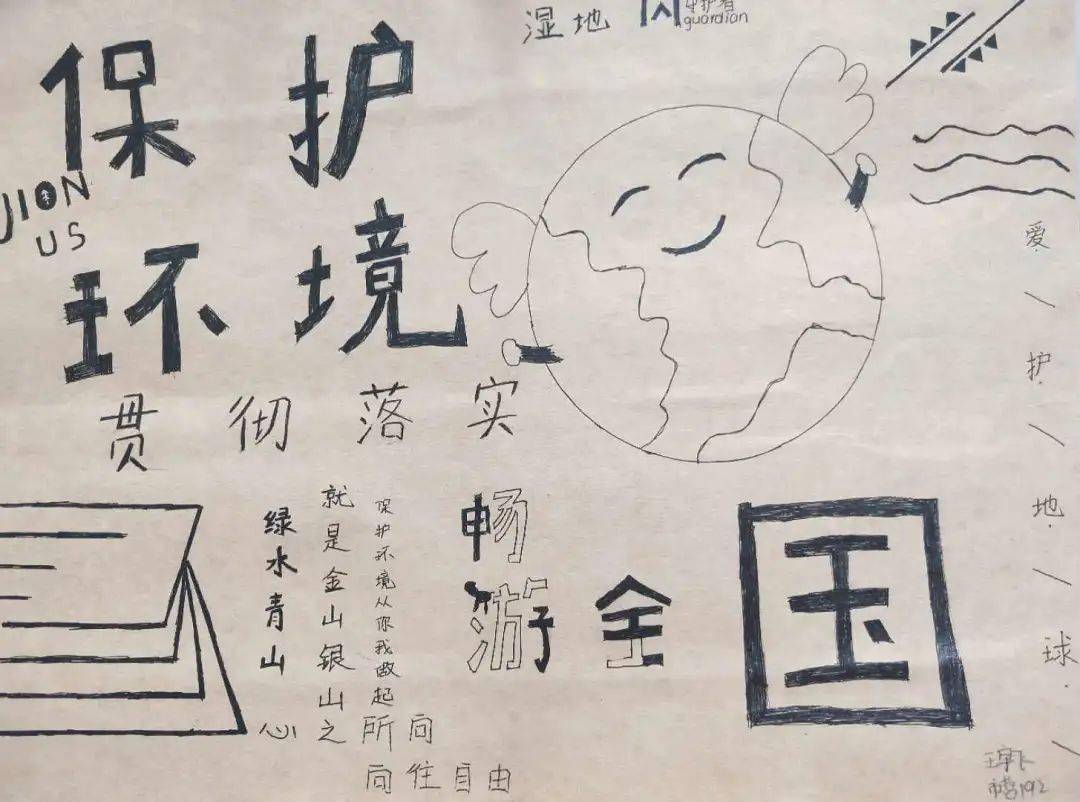 湿地
守护者
guardian
保护
JION
US
环境
贯彻落实
绿水青山
就是金山银山
保护环境从你我做起
畅游全国
心之所向
向往自由
爱护地球